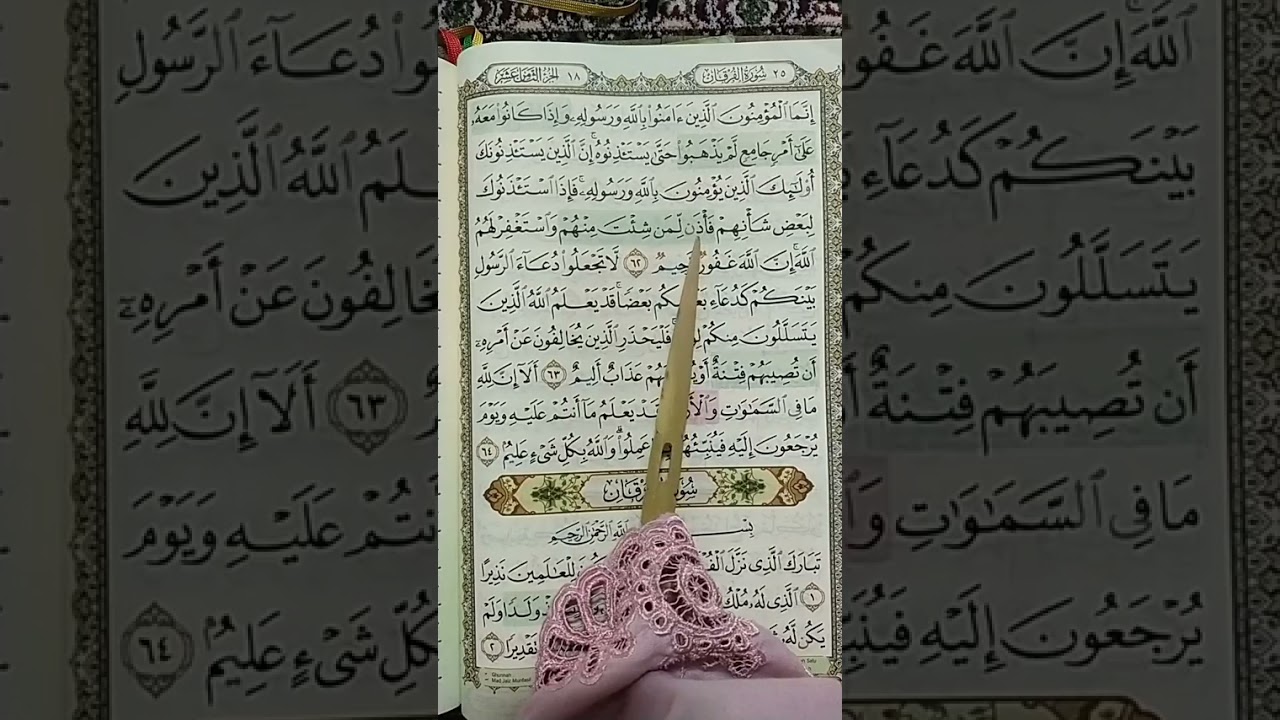 ٢٥ سُورَةُ الفُرْقَان
١٨ الجُزْءُ الثَّامِنُ عَشَرَ
إِنَّمَا ٱلْمُؤْمِنُونَ ٱلَّذِينَ ءَامَنُوا۟ بِٱللَّهِ وَرَسُولِهِۦ وَإِذَا كَانُوا۟ مَعَهُۥ
عَلَىٰٓ أَمْرٍ جَامِعٍ لَّمْ يَذْهَبُوا۟ حَتَّىٰ يَسْتَـْٔذِنُوهُ ۚ إِنَّ ٱلَّذِينَ يَسْتَـْٔذِنُونَكَ
أُو۟لَـٰٓئِكَ ٱلَّذِينَ يُؤْمِنُونَ بِٱللَّهِ وَرَسُولِهِۦ ۚ فَإِذَا ٱسْتَـْٔذَنُوكَ
لِبَعْضِ شَأْنِهِمْ فَأْذَن لِّمَن شِئْتَ مِنْهُمْ وَٱسْتَغْفِرْ لَهُمُ
ٱللَّهَ ۚ إِنَّ ٱللَّهَ غَفُورٌ رَّحِيمٌ ٦٢ لَّا تَجْعَلُوا۟ دُعَآءَ ٱلرَّسُولِ
بَيْنَكُمْ كَدُعَآءِ بَعْضِكُم بَعْضًا ۚ قَدْ يَعْلَمُ ٱللَّهُ ٱلَّذِينَ
يَتَسَلَّلُونَ مِنكُمْ فَلْيَحْذَرِ ٱلَّذِينَ يُخَالِفُونَ عَنْ أَمْرِهِۦٓ
أَن تُصِيبَهُمْ فِتْنَةٌ أَوْ عَذَابٌ أَلِيمٌ ٦٣ أَلَآ إِنَّ لِلَّهِ
مَا فِى ٱلسَّمَـٰوَٰتِ وَٱلْأَرْضِ قَدْ يَعْلَمُ مَآ أَنتُمْ عَلَيْهِ وَيَوْمَ
يُرْجَعُونَ إِلَيْهِ فَيُنَبِّئُهُم عَمِلُوا۟ ۗ وَٱللَّهُ بِكُلِّ شَىْءٍ عَلِيمٌۢ ٦٤
سُورَةُ الفُرْقَان
بِسْمِ ٱللَّهِ ٱلرَّحْمَـٰنِ ٱلرَّحِيمِ
تَبَارَكَ ٱلَّذِى نَزَّلَ لِلْعَـٰلَمِينَ نَذِيرًا
١ ٱلَّذِى لَهُۥ مُلْكُ وَلَدًا وَلَمْ
يَكُن لَّهُۥ تَقْدِيرًا ٢